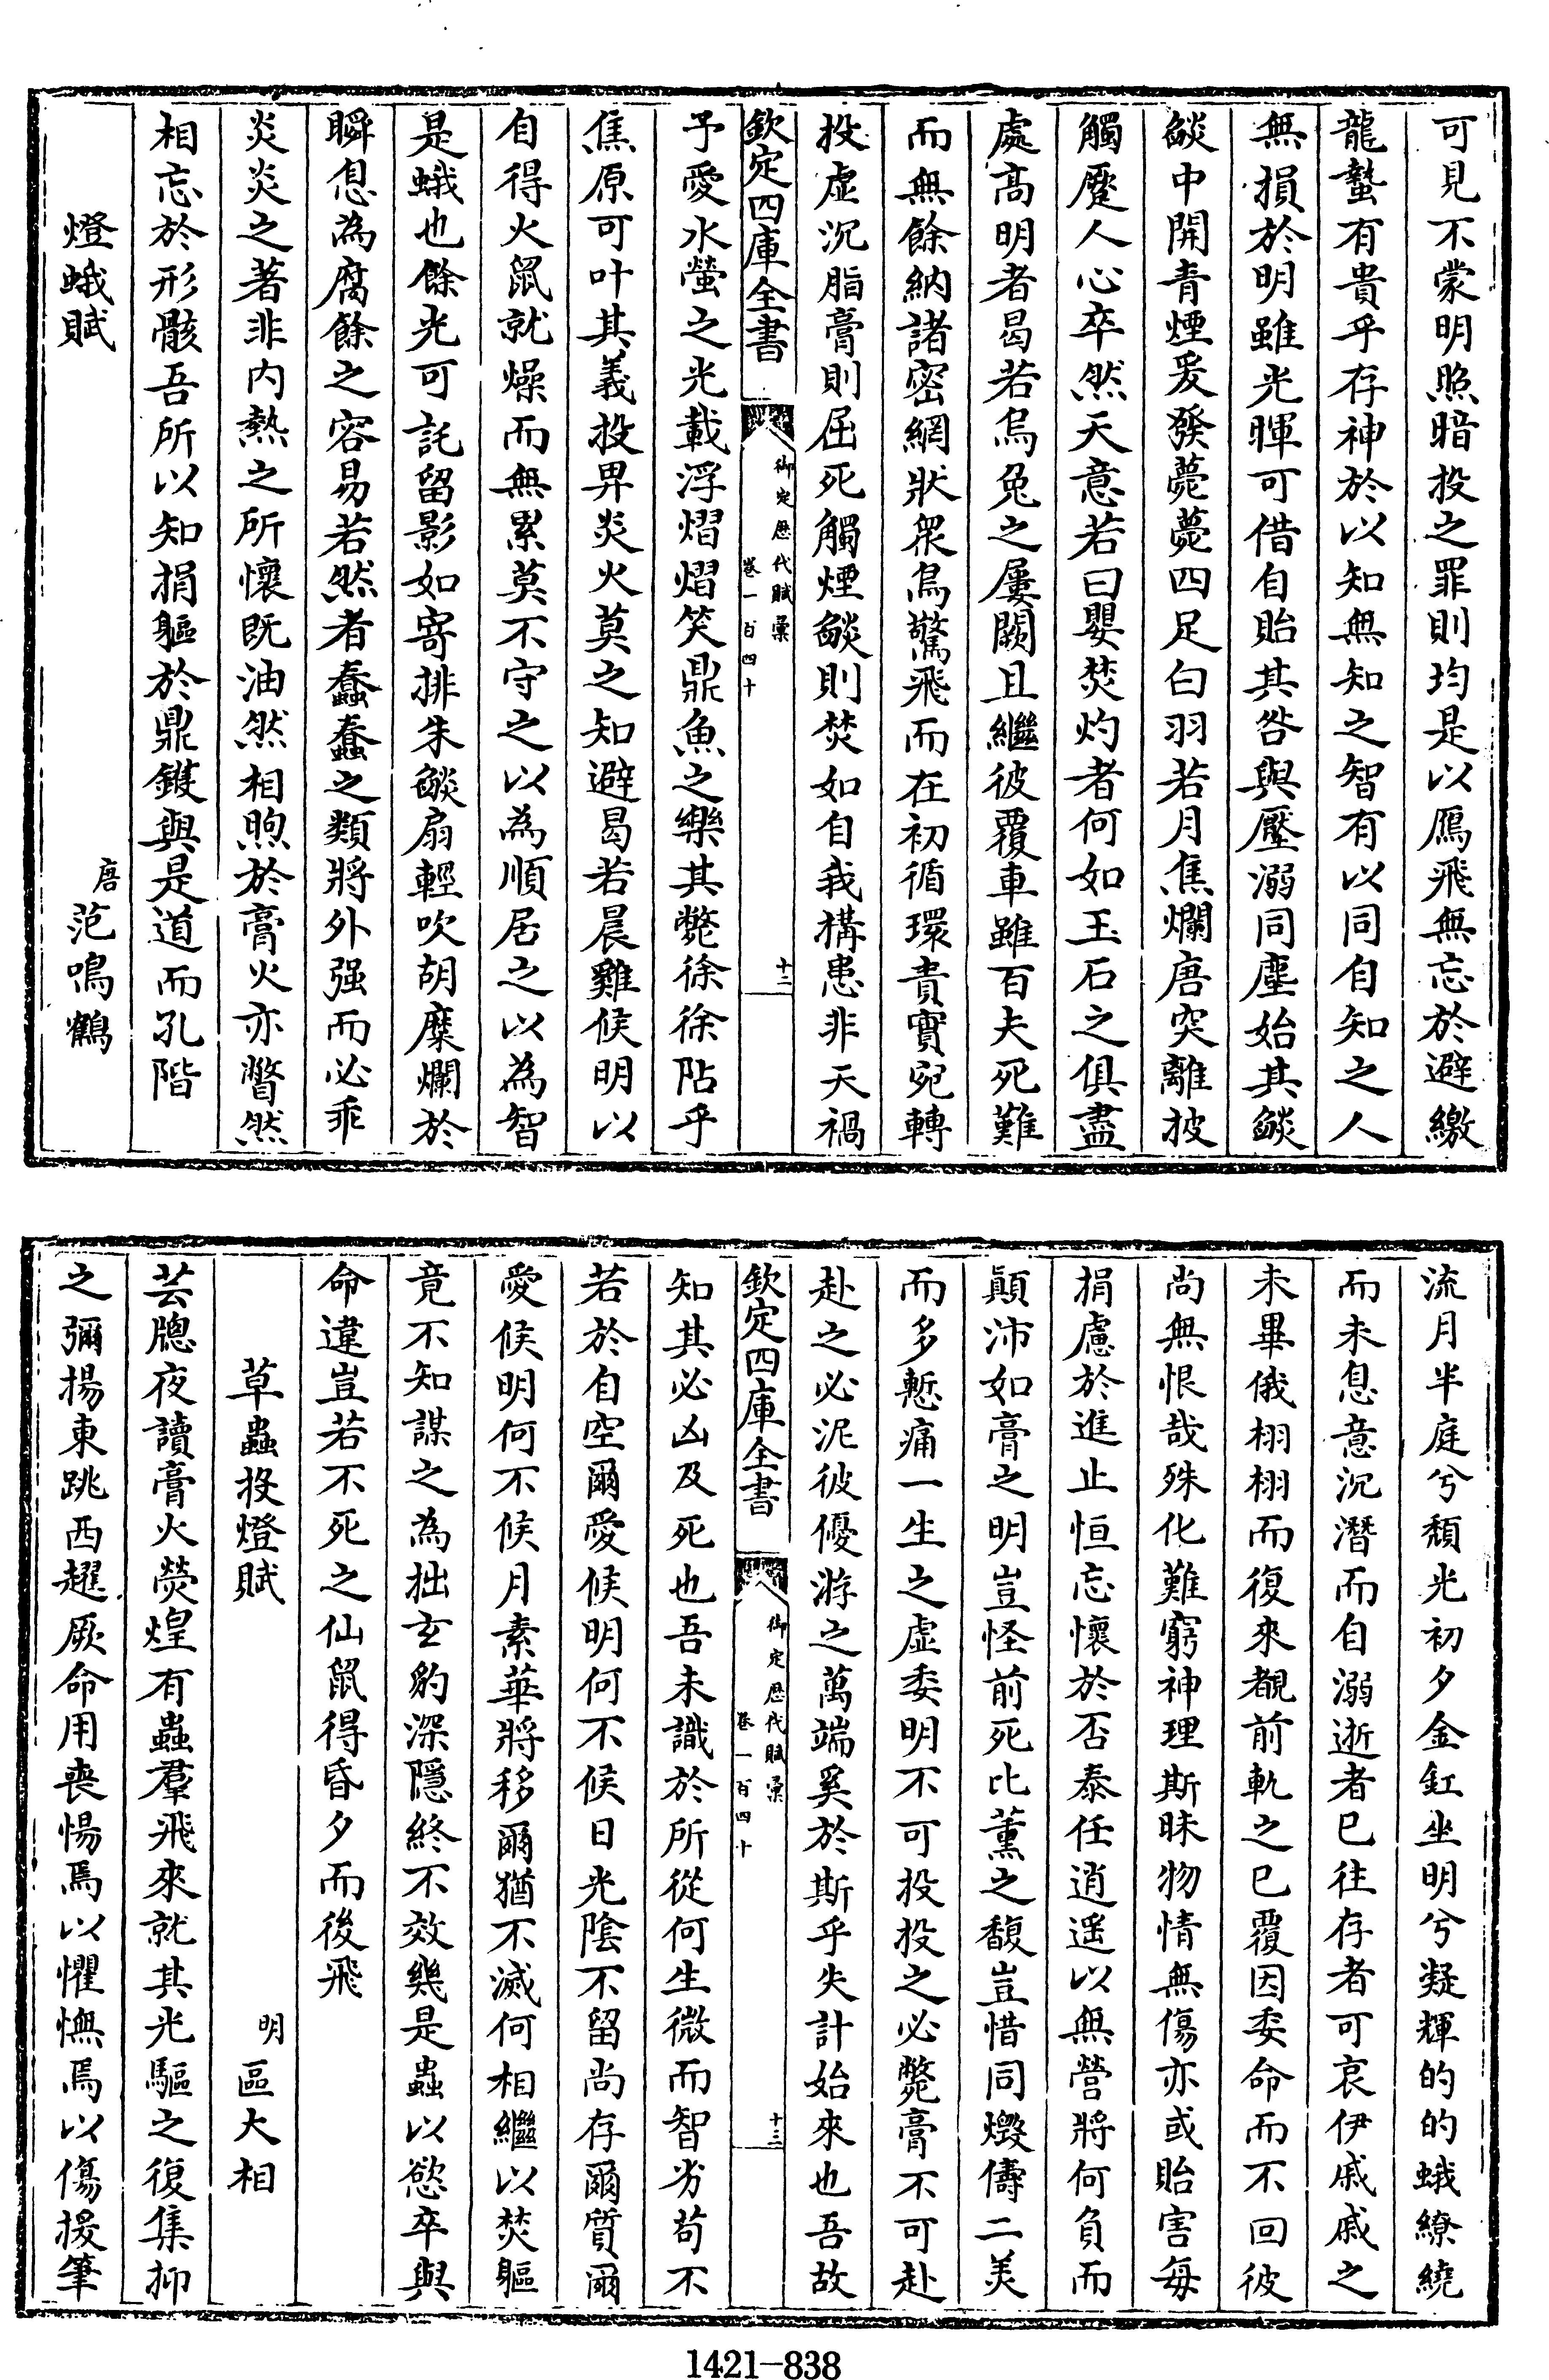 可見不蒙明照暗投之罪則均是以鴈飛無忘於避繳
龍蟄有貴乎存神於以知無知之智有以同自知之人
無損於明雖光暉可借自貽其咎與壓溺同塵始其燄
燄中開青煙爰發薨薨四足白羽若月焦爛唐突離披
觸蹙人心卒然天意若曰嬰焚灼者何如玉石之俱盡
處髙明者曷若烏兔之屢闕且繼彼覆車雖百夫死難
而無餘納諸密網狀衆鳥驚飛而在初循環貴實宛轉
投虛沉脂膏則屈死觸煙燄則焚如自我構患非天禍
欽定四庫全書
御定歷代賦彙
卷一百四十
十二
予愛水螢之光載浮熠熠笑鼎魚之樂其斃徐徐阽乎
焦原可叶其義投畀炎火莫之知避曷若晨雞候明以
自得火鼠就燥而無累莫不守之以為順居之以為智
是蛾也餘光可託留影如寄排朱燄扇輕吹胡糜爛於
瞬息為腐餘之容易若然者蠢蠢之類將外强而必乖
炎炎之著非内熱之所懷既油然相煦於膏火亦瞥然
相忘於形骸吾所以知捐軀於鼎鑊與是道而孔階
燈蛾賦
唐 范鳴鶴
流月半庭兮頹光初夕金釭坐明兮凝輝的的蛾繚繞
而未息意沉潛而自溺逝者已往存者可哀伊戚戚之
未畢俄栩栩而復來覩前軌之已覆因委命而不回彼
尚無恨哉殊化難窮神理斯昧物情無傷亦或貽害每
捐慮於進止恒忘懷於否泰任逍遥以無營將何負而
顛沛如膏之明豈怪前死比薰之馥豈惜同燬儔二美
而多慙痛一生之虛委明不可投投之必斃膏不可赴
赴之必泥彼優游之萬端奚於斯乎失計始來也吾故
欽定四庫全書
御定歷代賦彙
卷一百四十
十三
知其必凶及死也吾未識於所從何生微而智劣苟不
若於自空爾愛候明何不候日光陰不留尚存爾質爾
愛候明何不候月素華將移爾猶不滅何相繼以焚軀
竟不知謀之為拙玄豹深隱終不效幾是蟲以慾卒與
命違豈若不死之仙鼠得昏夕而後飛
草蟲投燈賦
明 區大相
芸牕夜讀膏火熒煌有蟲羣飛來就其光驅之復集抑
之彌揚東跳西趯厥命用喪惕焉以懼憮焉以傷援筆
1421-838